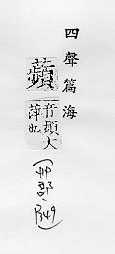 四聲篇海
蘋
音頻大
萍也
(艸部 349)